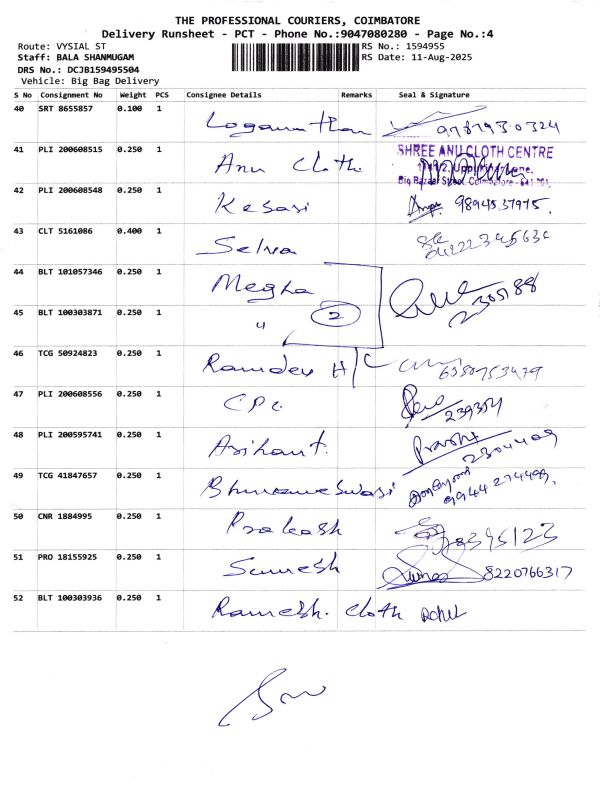 THE PROFESSIONAL COURIERS, COIMBATORE
Delivery Runsheet - PCT - Phone No.:9047080280 - Page No.:4
Route: VYSIAL ST RS No.: 1594955
Staff: BALA SHANMUGAM RS Date: 11-Aug-2025
DRS No.: DCJB159495504
Vehicle: Big Bag Delivery
S No Consignment No Weight PCS Consignee Details Remarks Seal & Signature
40 SRT 8655857 0.100 1 Loganathan 9787930324
41 PLI 200608515 0.250 1 Anu Cloth SHREE ANU CLOTH CENTRE
Big Bazaar Street, Coimbatore - 641 001.
42 PLI 200608548 0.250 1 Kesari 9894537975.
43 CLT 5161086 0.400 1 Selva
44 BLT 101057346 0.250 1 Megha 2305188
45 BLT 100303871 0.250 1 " 2
46 TCG 50924823 0.250 1 Ramdev H/C 6380753479
47 PLI 200608556 0.250 1 CPC 239354
48 PLI 200595741 0.250 1 Arihant. 2304409
49 TCG 41847657 0.250 1 Bhuvaneswari 9944274499
50 CNR 1884995 0.250 1 Prakash
51 PRO 18155925 0.250 1 Suresh 8220766317
52 BLT 100303936 0.250 1 Ramesh. Cloth